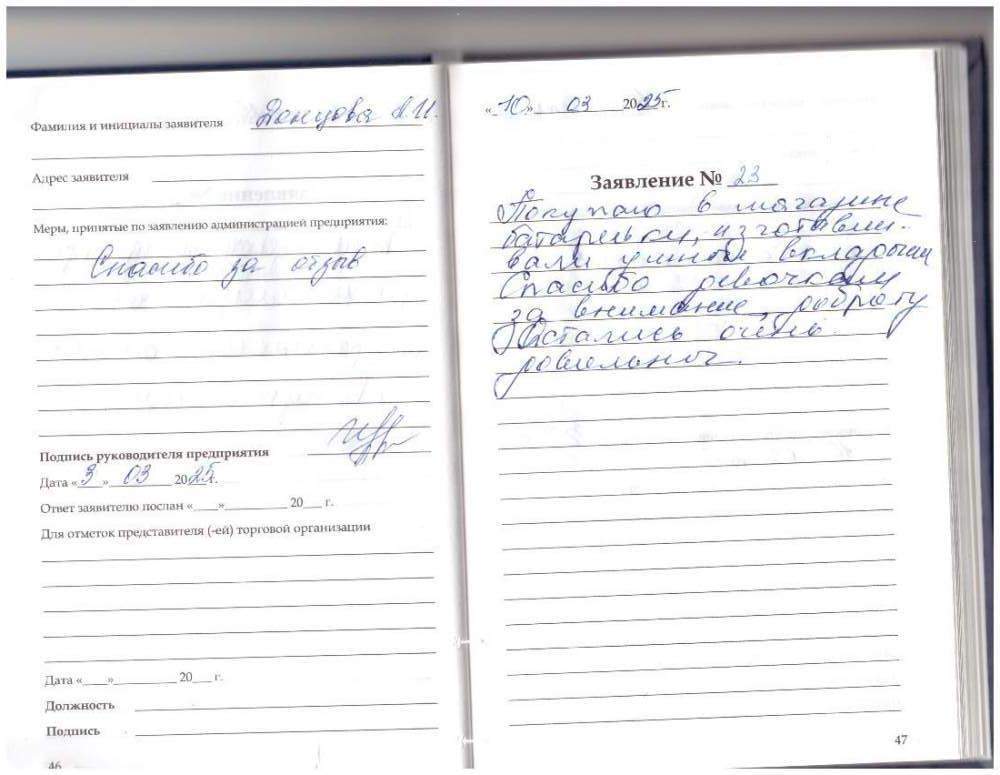 Фамилия и инициалы заявителя Донцова А.И.
Адрес заявителя
Меры, принятые по заявлению администрацией предприятия:
Спасибо за отзыв
Подпись руководителя предприятия
Дата «3» 03 2025г.
Ответ заявителю послан «____»__________ 20___ г.
Для отметок представителя (-ей) торговой организации
Дата «____»__________ 20___ г.
Должность
Подпись
46
«10» 03 2025г.
Заявление № 23
Покупаю в магазине
батарейки, изготавли-
вали ушной вкладыш
Спасибо девочкам
за внимание, доброту
Остались очень
довольной.
47